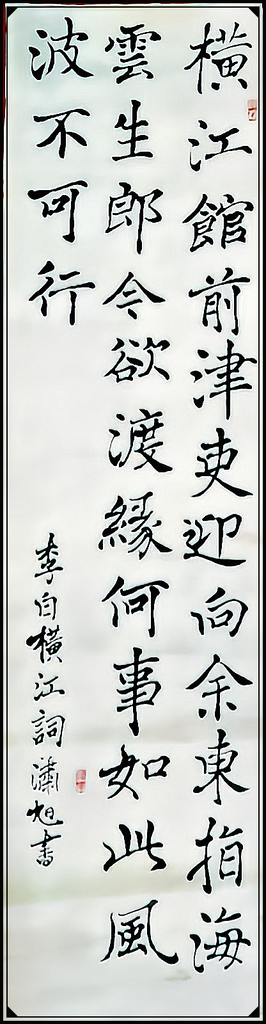 橫江館前津吏迎向余東指海
雲生郎今欲渡緣何事如此風
波不可行
李白橫江詞瀟旭書